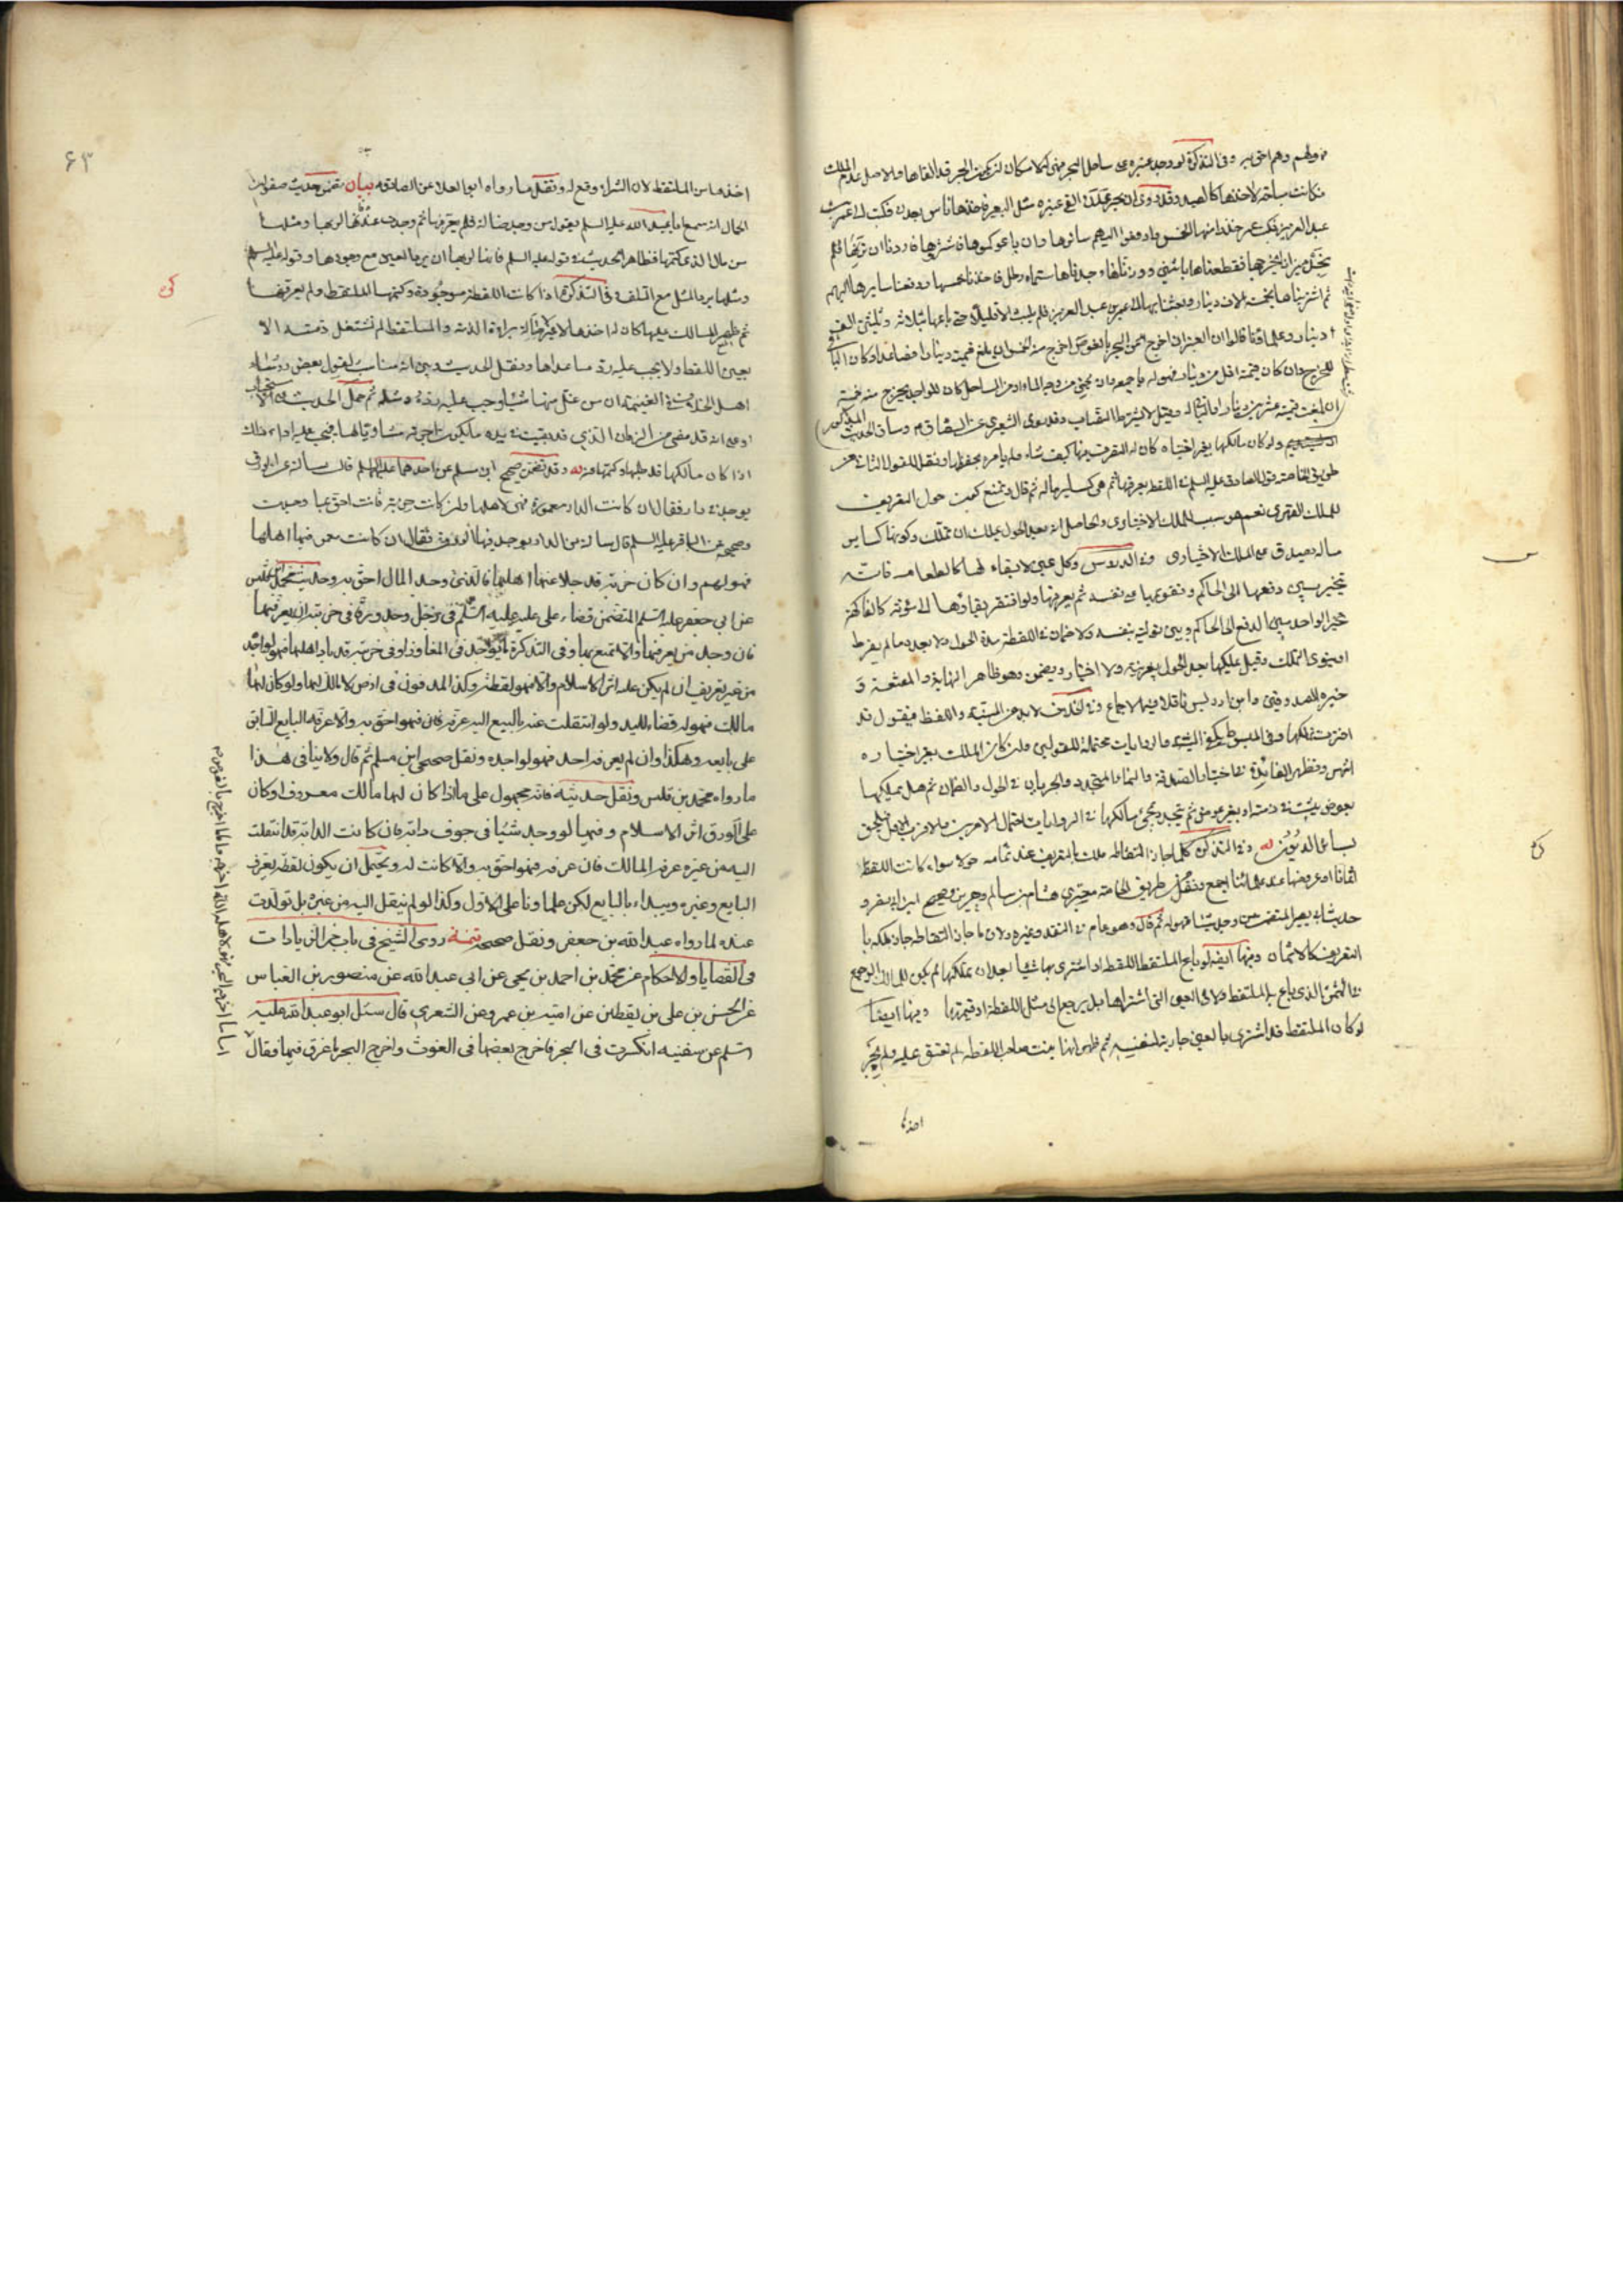 فهو لهم وهم احق به وفى التذكرة لو وجد عنبره على ساحل البحر فهى له لامكان ان يكون البحر قد القاها والاصل عدم الملك
فكانت مباحة لاخذها كالصيد وقد روى ان بحر عدن القى عنبره مثل البعير فاخذها ناس بعدن فكتب الى عمر بن
عبد العزيز فكتب عمر خذوا منها الخمس وادفعوا اليهم سائرها وان باعوكموها فاشتروها فاردنا ان نزنها فلم
نجد ميزان يخرجها فقطعناها باثنين ووزنا فوجدناها ستماه رطل فاخذنا خمسها ودفعنا سايرها اليهم
ثم اشتريناها بخمسة الاف دينار وبعثنا بها الى عمر بن عبد العزيز فلم يلبث الا قليلا حتى باعها بثلاثة وثلثين الف
دينار وعلماؤنا قالوا ان العنبر ان اخرج من البحر بالغوص اخرج منه الخمس ان بلغ قيمته دينارا فصاعدا وكان الباقى
للمخرج وان كان قيمته اقل من دينار فهو له باجمعه وان جنى من وجه الماء او من الساحل كان للواجد يخرج منه خمسه
ان بلغت قيمته عشرين دينارا والباقى له وقيل لا يشترط النصاب وقد روى الشعيرى عن الصادق م وساق الحديث المذكور
ولو كان مالكها بغير اختياره كان له التصرف فيها كيف شاء ولم يامره بحفظها ونقل للقول الثانى من
طريق الخاصة قول الصادق عليه السلم فى اللقطة يعرفها ثم هى كساير ماله ثم قال ونمنع كون حول التعريف
للملك القهرى نعم هو سبب للملك الاختيارى والحاصل انه بعد الحول يملك ان يتملك وكونها كساير
ماله يصدق مع الملك الاختيارى وفى الدروس وكل عين لا بقاء لها كالطعام فانه
يتخير بين دفعها الى الحاكم وتقويمها على نفسه ثم يعرفها ولو افتقر بقاؤها الى مؤنة كالفاكهة
تخير الواجد بين الدفع الى الحاكم وبين توليته بنفسه ولا ضمان فى اللقطة مدة الحول ولا بعده ما لم يفرط
او ينوى التملك وقيل يملكها بعد الحول بغير نية ولا اختيار ويضمن وهو ظاهر النهاية والمقنعة و
خيرة الصدوقين وابن ادريس ناقلا فيه الاجماع وفى الخلاف لابد من النية واللفظ فيقول قد
اخترت تملكها وفى المبسوط يكفى النية والروايات محتملة للقولين وان كان الملك بغير اختياره
اشهر وتظهر الفائدة فى اختيار الصدقة والنماء المتجدد والجريان فى الحول والضمان ثم هل يملكها
بعوض يثبت فى ذمته او بغير عوض ثم يتجدد بمجئ مالكها فى الروايات احتمال الامرين والاقرب الاول فيلحق
بسائر الديون له وفى التذكرة كلما جاز التقاطه ملك بالتعريف عند تمامه حولا سواء كانت اللقطة
اثمانا او عروضا عند علمائنا اجمع ونقل من طريق الخاصة صحيحتى هشام بن سالم وحريز وصحيح ابن ابى يعفور
حديث ابى بصير المتضمن من وجد شيئا فهو له ثم قال وهو عام فى النقد وغيره ولان ما جاز التقاطه جاز تملكه با
التعريف كالاثمان وفيها ايضا لو باع الملتقط اللقطة او اشترى بها شيئا بعد ان تملكها لم يكن للمالك الرجوع
فى الثمن الذى باع به الملتقط ولا فى العين التى اشتراها بل يرجع الى مثل اللقطة او قيمتها وفيها ايضا
لو كان الملتقط قد اشترى بالعين جارية لنفسه ثم ظهر انها بنت صاحب اللقطة لم تعتق عليه ولم يجز
اخذها
٤٣
اخذها من الملتقط لان الشراء وقع له ونقل ما رواه ابو العلا عن الصادق م بيان تضمن حديث صفوان
الجمال انه سمع ابا عبد الله عليه السلم يقول من وجد ضالة فلم يعرفها ثم وجدت عنده فانها لربها ومثلها
من مال الذى كتمها فظاهر الحديث قوله عليه السلم فانها لربها ان يرد العين مع وجودها وقوله عليه السلم
ومثلها يرد المثل مع التلف وفى التذكرة اذا كانت اللقطة موجودة وكتمها الملتقط ولم يعرفها
ثم ظهر المالك عليها كان له اخذها لا غير لاصالة براءة الذمة والملتقط لم تشتغل ذمته الا
بعين اللقطة ولا يجب عليه رد ما عداها ونقل الحديث وبين انه مناسب لقول بعض
اهل الخلاف فى الغنيمة ان من غل منها شيئا وجب عليه رده ومثله ثم حمل الحديث على الاستحباب
او على انه قد مضى من الزمان الذى قد بقيت فى يده ما يكون اجرته مساويا لها فيجب عليه اداء ذلك
اذا كان مالكها قد طلبها وكتمها منه له وقد تضمن صحيح ابن مسلم عن احدهما عليهما السلم قال سالته عن الورق
يوجد فى دار فقال ان كانت الدار معمورة فهى لاهلها وان كانت خربة فانت احق بما وجدت
وصحيحه عن الباقر عليه السلم قال سالته عن الدار يوجد فيها الورق فقال ان كانت معمورة فيها اهلها
فهو لهم وان كان خربة قد جلا عنها اهلها فالذى وجد المال احق به وحديث محمد بن قيس
عن ابى جعفر عليه السلم المتضمن قضاء على عليه السلم فى رجل وجد ورقا فى خربة ان يعرفها
فان وجد من يعرفها والا تمتع بها وفى التذكرة ما يوجد فى المفاوز او فى خربة قد باد اهلها فهو لواجده
من غير تعريف ان لم يكن عليه اثر الاسلام والا فهو لقطة وكذا المدفون فى ارض لا مالك لها ولو كان لها
مالك فهو له قضاء لليد ولو انتقلت عنه بالبيع اليه عرفه فان فهو احق به والا عرفه البايع السابق
على بايعه وهكذا وان لم يعرفه احد فهو لواجده ونقل صحيحى ابن مسلم ثم قال ولا ينافى هذا
ما رواه محمد بن قيس ونقل حديثه فانه محمول على ما اذا كان لها مالك معروف او كان
على الورق اثر الاسلام وفيها لو وجد شيئا فى جوف دابة فان كانت الدابة قد انتقلت
اليه من غيره عرفه المالك فان عرفه فهو احق به والا كانت له ويحتمل ان يكون لقطة يعرف
البايع وغيره ويبداء بالبايع لكن علماؤنا على الاول وكذا لو لم ينتقل اليه من غيره بل تولدت
عنده لما رواه عبد الله بن جعفر ونقل صحيحه تتمة روى الشيخ فى باب من الزيادات
فى القضايا والاحكام عن محمد بن احمد بن يحيى عن ابى عبد الله عن منصور بن العباس
عن الحسن بن على بن يقطين عن امية بن عمرو عن الشعيرى قال سئل ابو عبد الله عليه
السلم عن سفينه انكسرت فى البحر فاخرج بعضها فى الغوث واخرج البحر ما غرق فيها فقال
اما ما اخرجه البحر فهو لاهله الله اخرجه واما ما اخرج بالغوص م